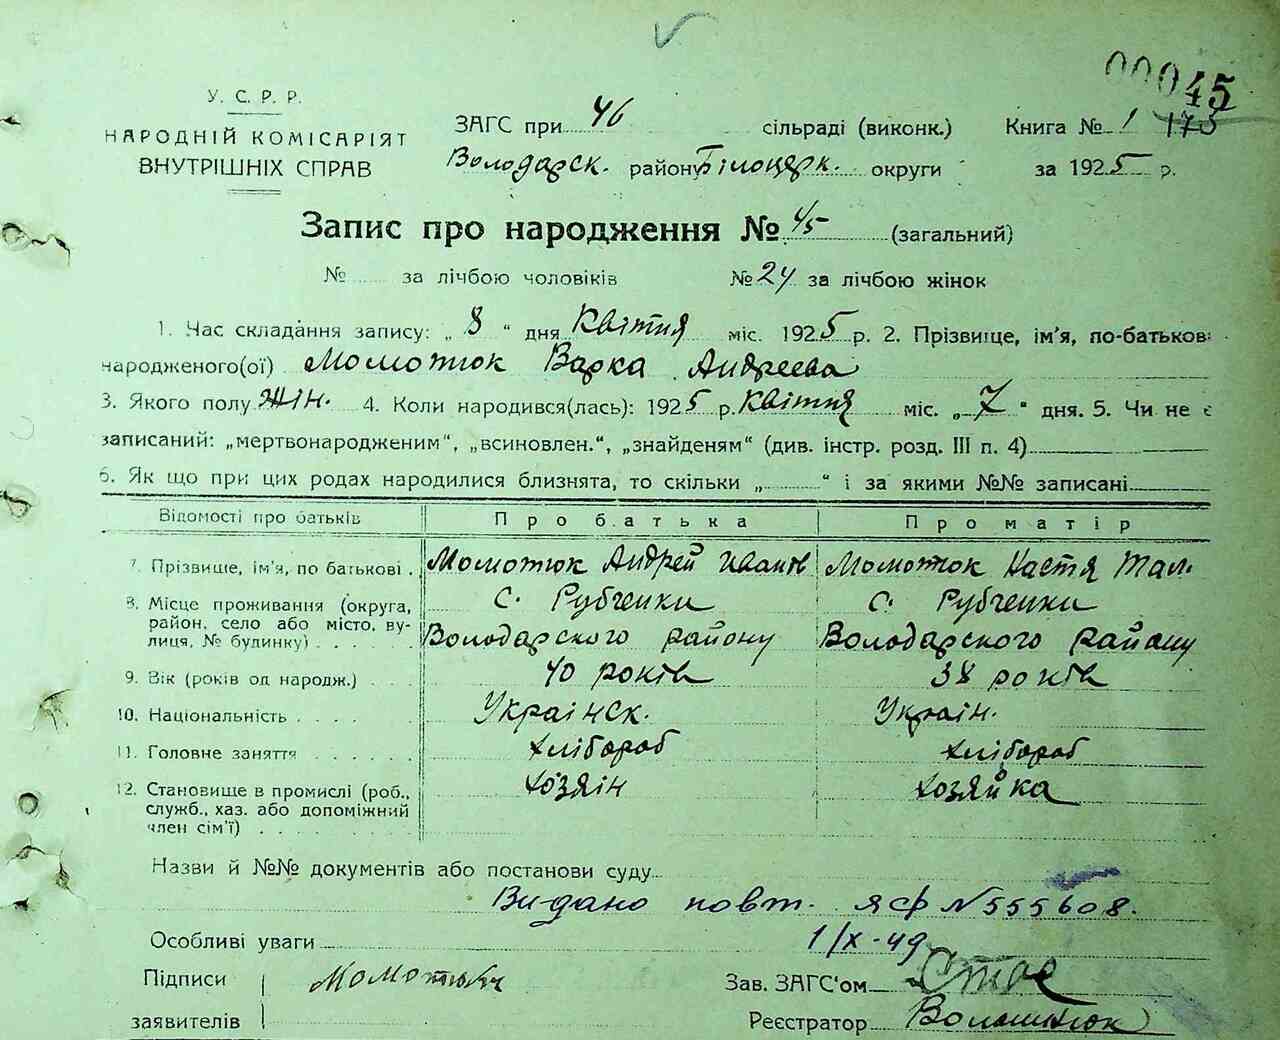 00045
У. С. Р. Р.
НАРОДНІЙ КОМІСАРІЯТ
ВНУТРІШНІХ СПРАВ
ЗАГС при 46 сільраді (виконк.) Книга № 1 173
Володарск. району Білоцерк. округи за 1925 р.
Запис про народження № 45 (загальний)
№ за лічбою чоловіків № 24 за лічбою жінок
1. Час складання запису: „ 8 “ дня Квітня міс. 1925 р. 2. Прізвище, ім'я, по-батьков:
народженого(ої) Момотюк Варка Андреева
3. Якого полу жін. 4. Коли народився(лась): 1925 р. Квітня міс. „ 7 “ дня. 5. Чи не є
записаний: „мертвонародженим“, „всиновлен.“, „знайденям“ (див. інстр. розд. III п. 4)
6. Як що при цих родах народилися близнята, то скільки „ “ і за якими №№ записані
Відомості про батьків Про батька Про матір
7. Прізвище, ім'я, по батькові . Момотюк Андрей Иванов Момотюк Настя
8. Місце проживання (округа, с. Рубченки с. Рубченки
район, село або місто, ву-
лиця, № будинку) . . . . . Володарского району Володарского району
9. Вік (років од народж.) . . . 40 років 38 років
10. Національність . . . . Украінск. Украін.
11. Головне заняття . . . . . . хлібороб хлібороб
12. Становище в промислі (роб., хозяін хозяйка
служб., хаз. або допоміжний
член сім'ї) . . . . . . . .
Назви й №№ документів або постанови суду
Видано повт. ЯФ N 555608.
Особливі уваги 1/X-49
Підписи Момотюк Зав. ЗАГС'ом
заявителів Реєстратор